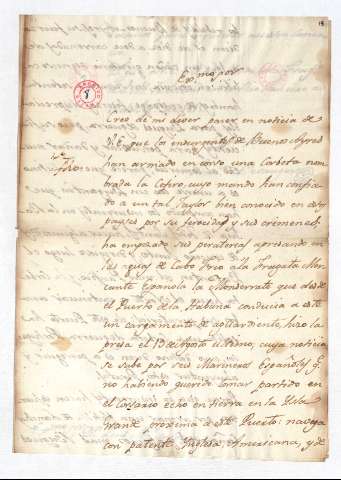 Exmo por
Creo de mi dever poner en noticia de
V.E. que los insurgentes de Buenos Ayres
han armado en corso una Corbeta nom
brada la Cefiro, cuyo mando han confia
do a un tal Taylor bien conocido en estos
payses por su ferocidad y sus crimenes,
ha empesado sus piraterias apresando en
las aguas de Cabo Frio a la Fragata Mer
cante Española la Monserrate que desde
el Puerto de la Habana conducia a este
un cargamento de aguardiente, hizo la
presa el 19 de Agosto ultimo, cuya noticia
se sabe por seis Marineros Españoles q.
no habiendo querido tomar partido en
el Corsario echo en tierra en la Isla
Grande proxima de este Puerto: navega
con patente Inglesa, Americana, y de